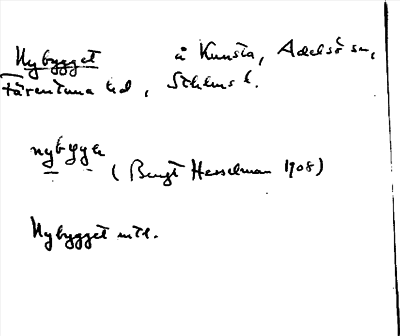 Nybygget å Kunsta, Adelsö sn,
Färentuna hd, Sthlms l.
nybyge
(Bengt Hesselman 1908)
Nybygget mtl.